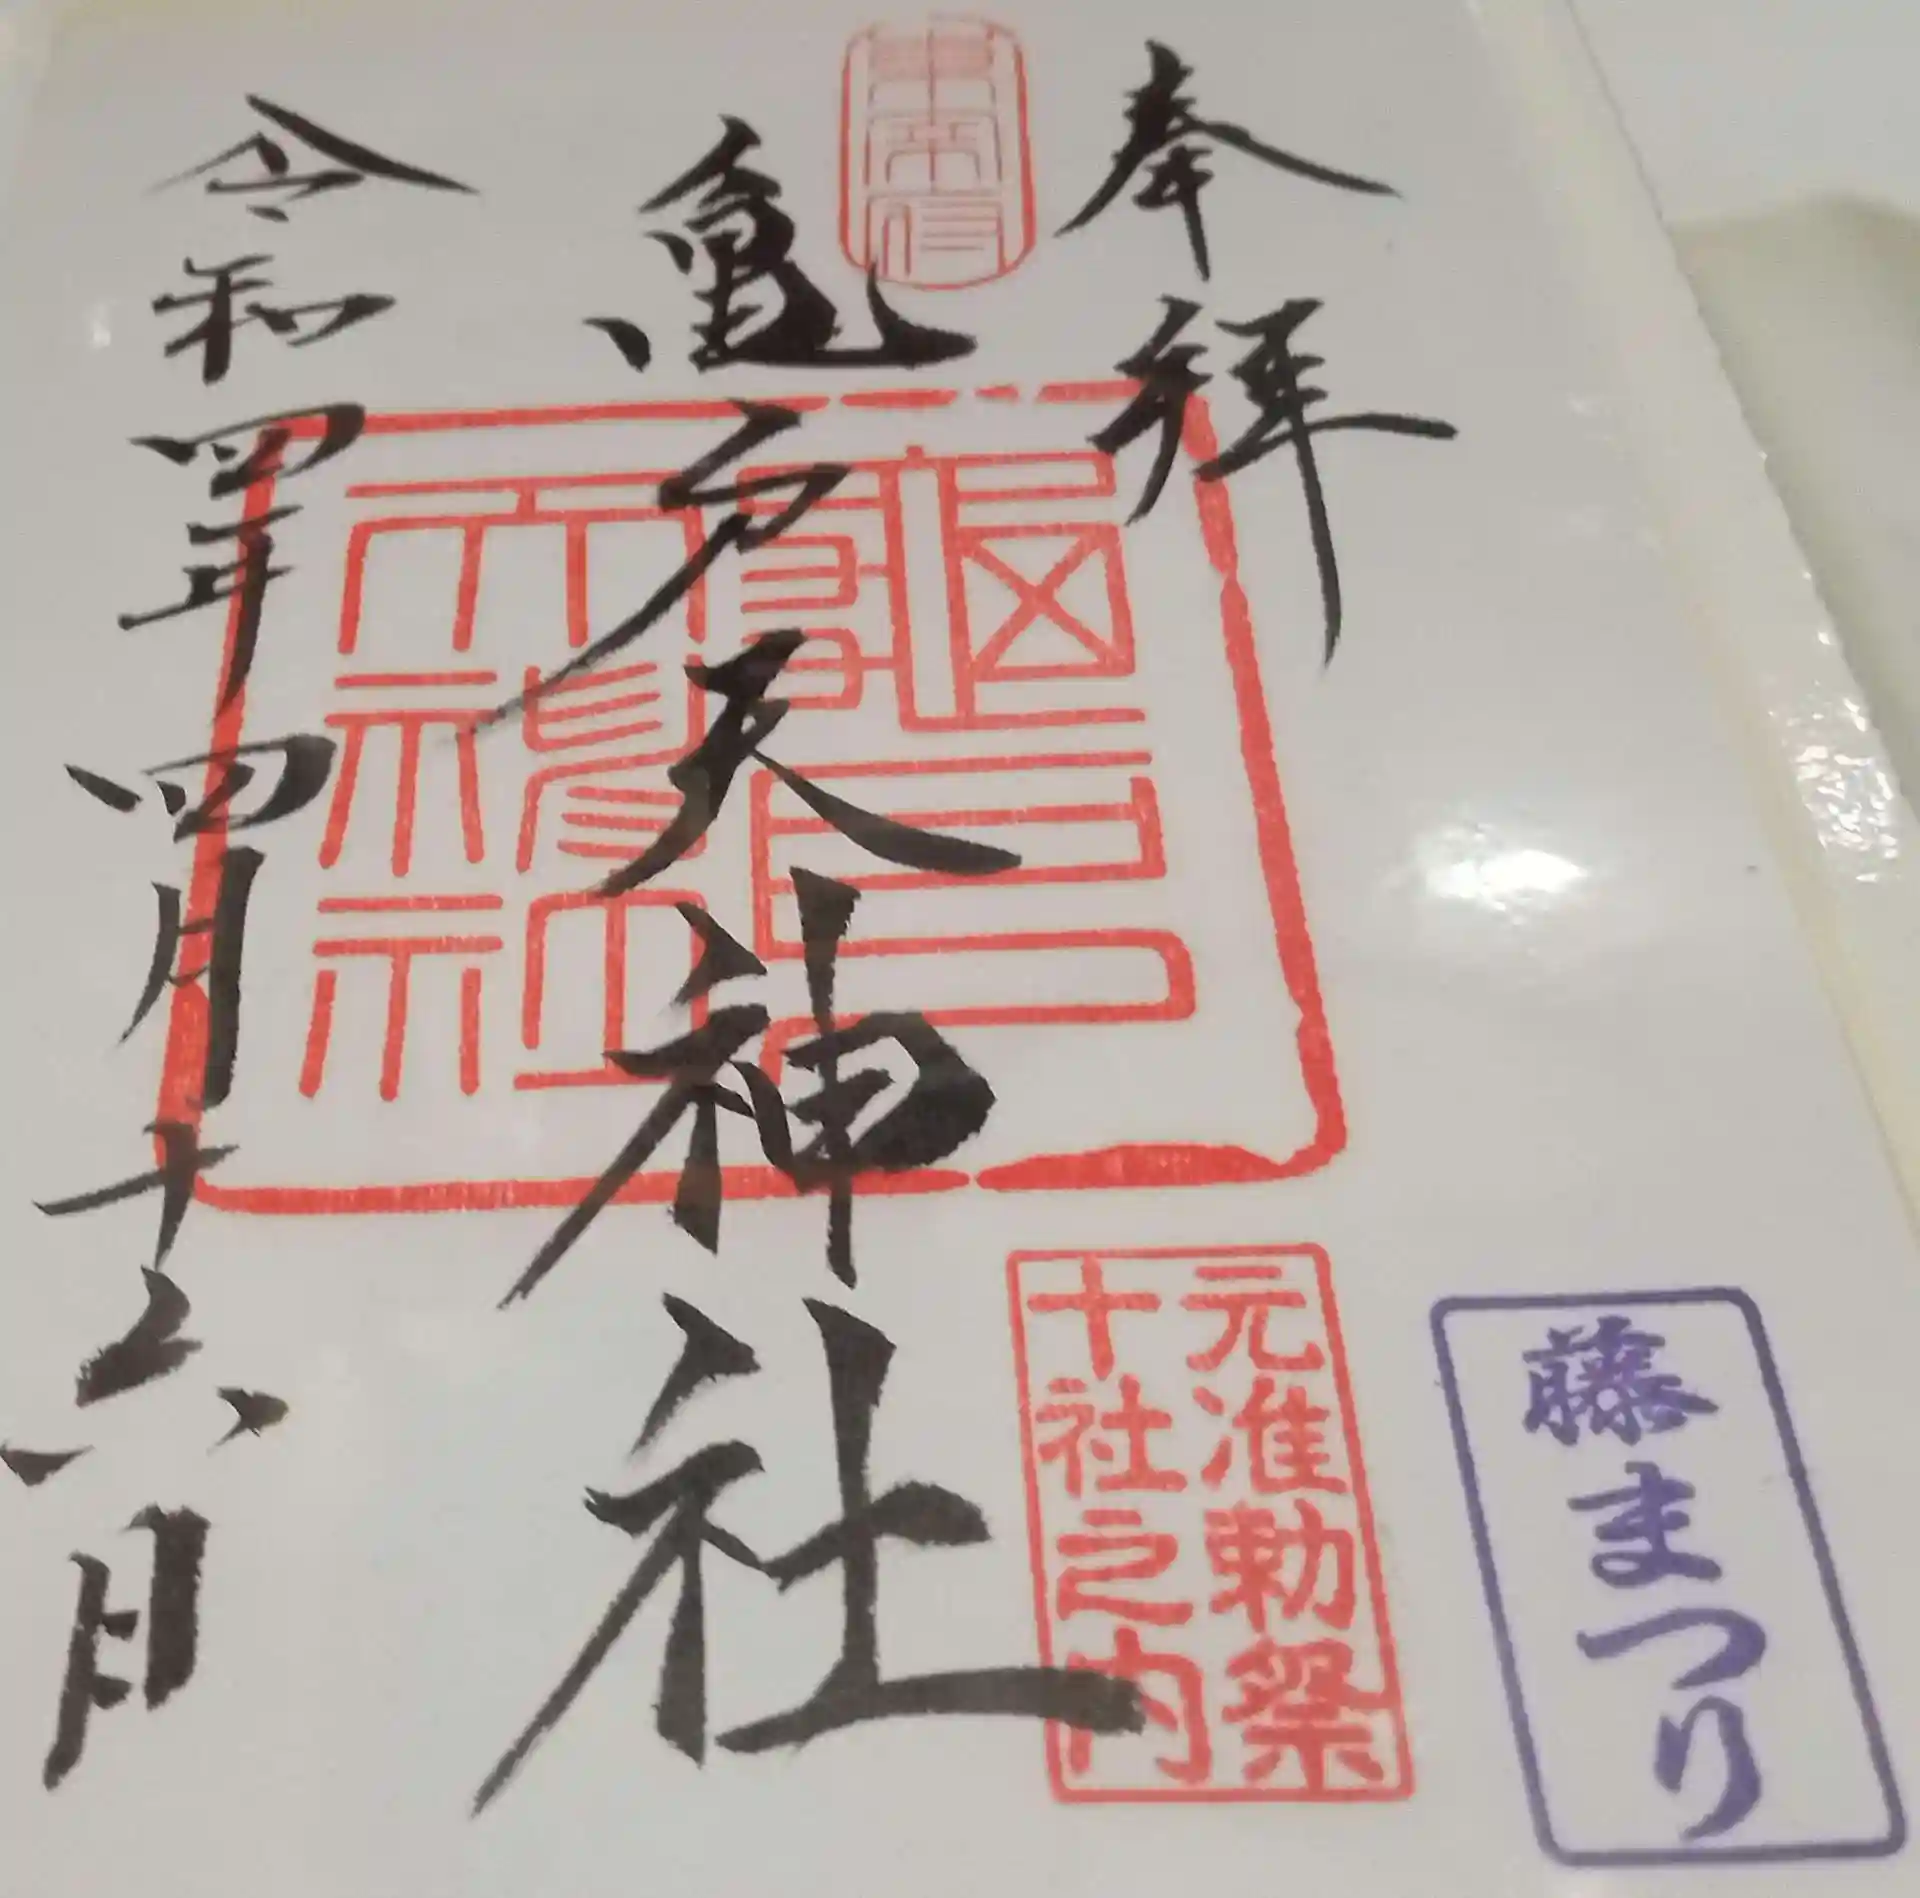 藤まつり
奉拝
元准勅祭
十社之内
亀戸天神社
龜戸
天神社
令和四年四月十六日